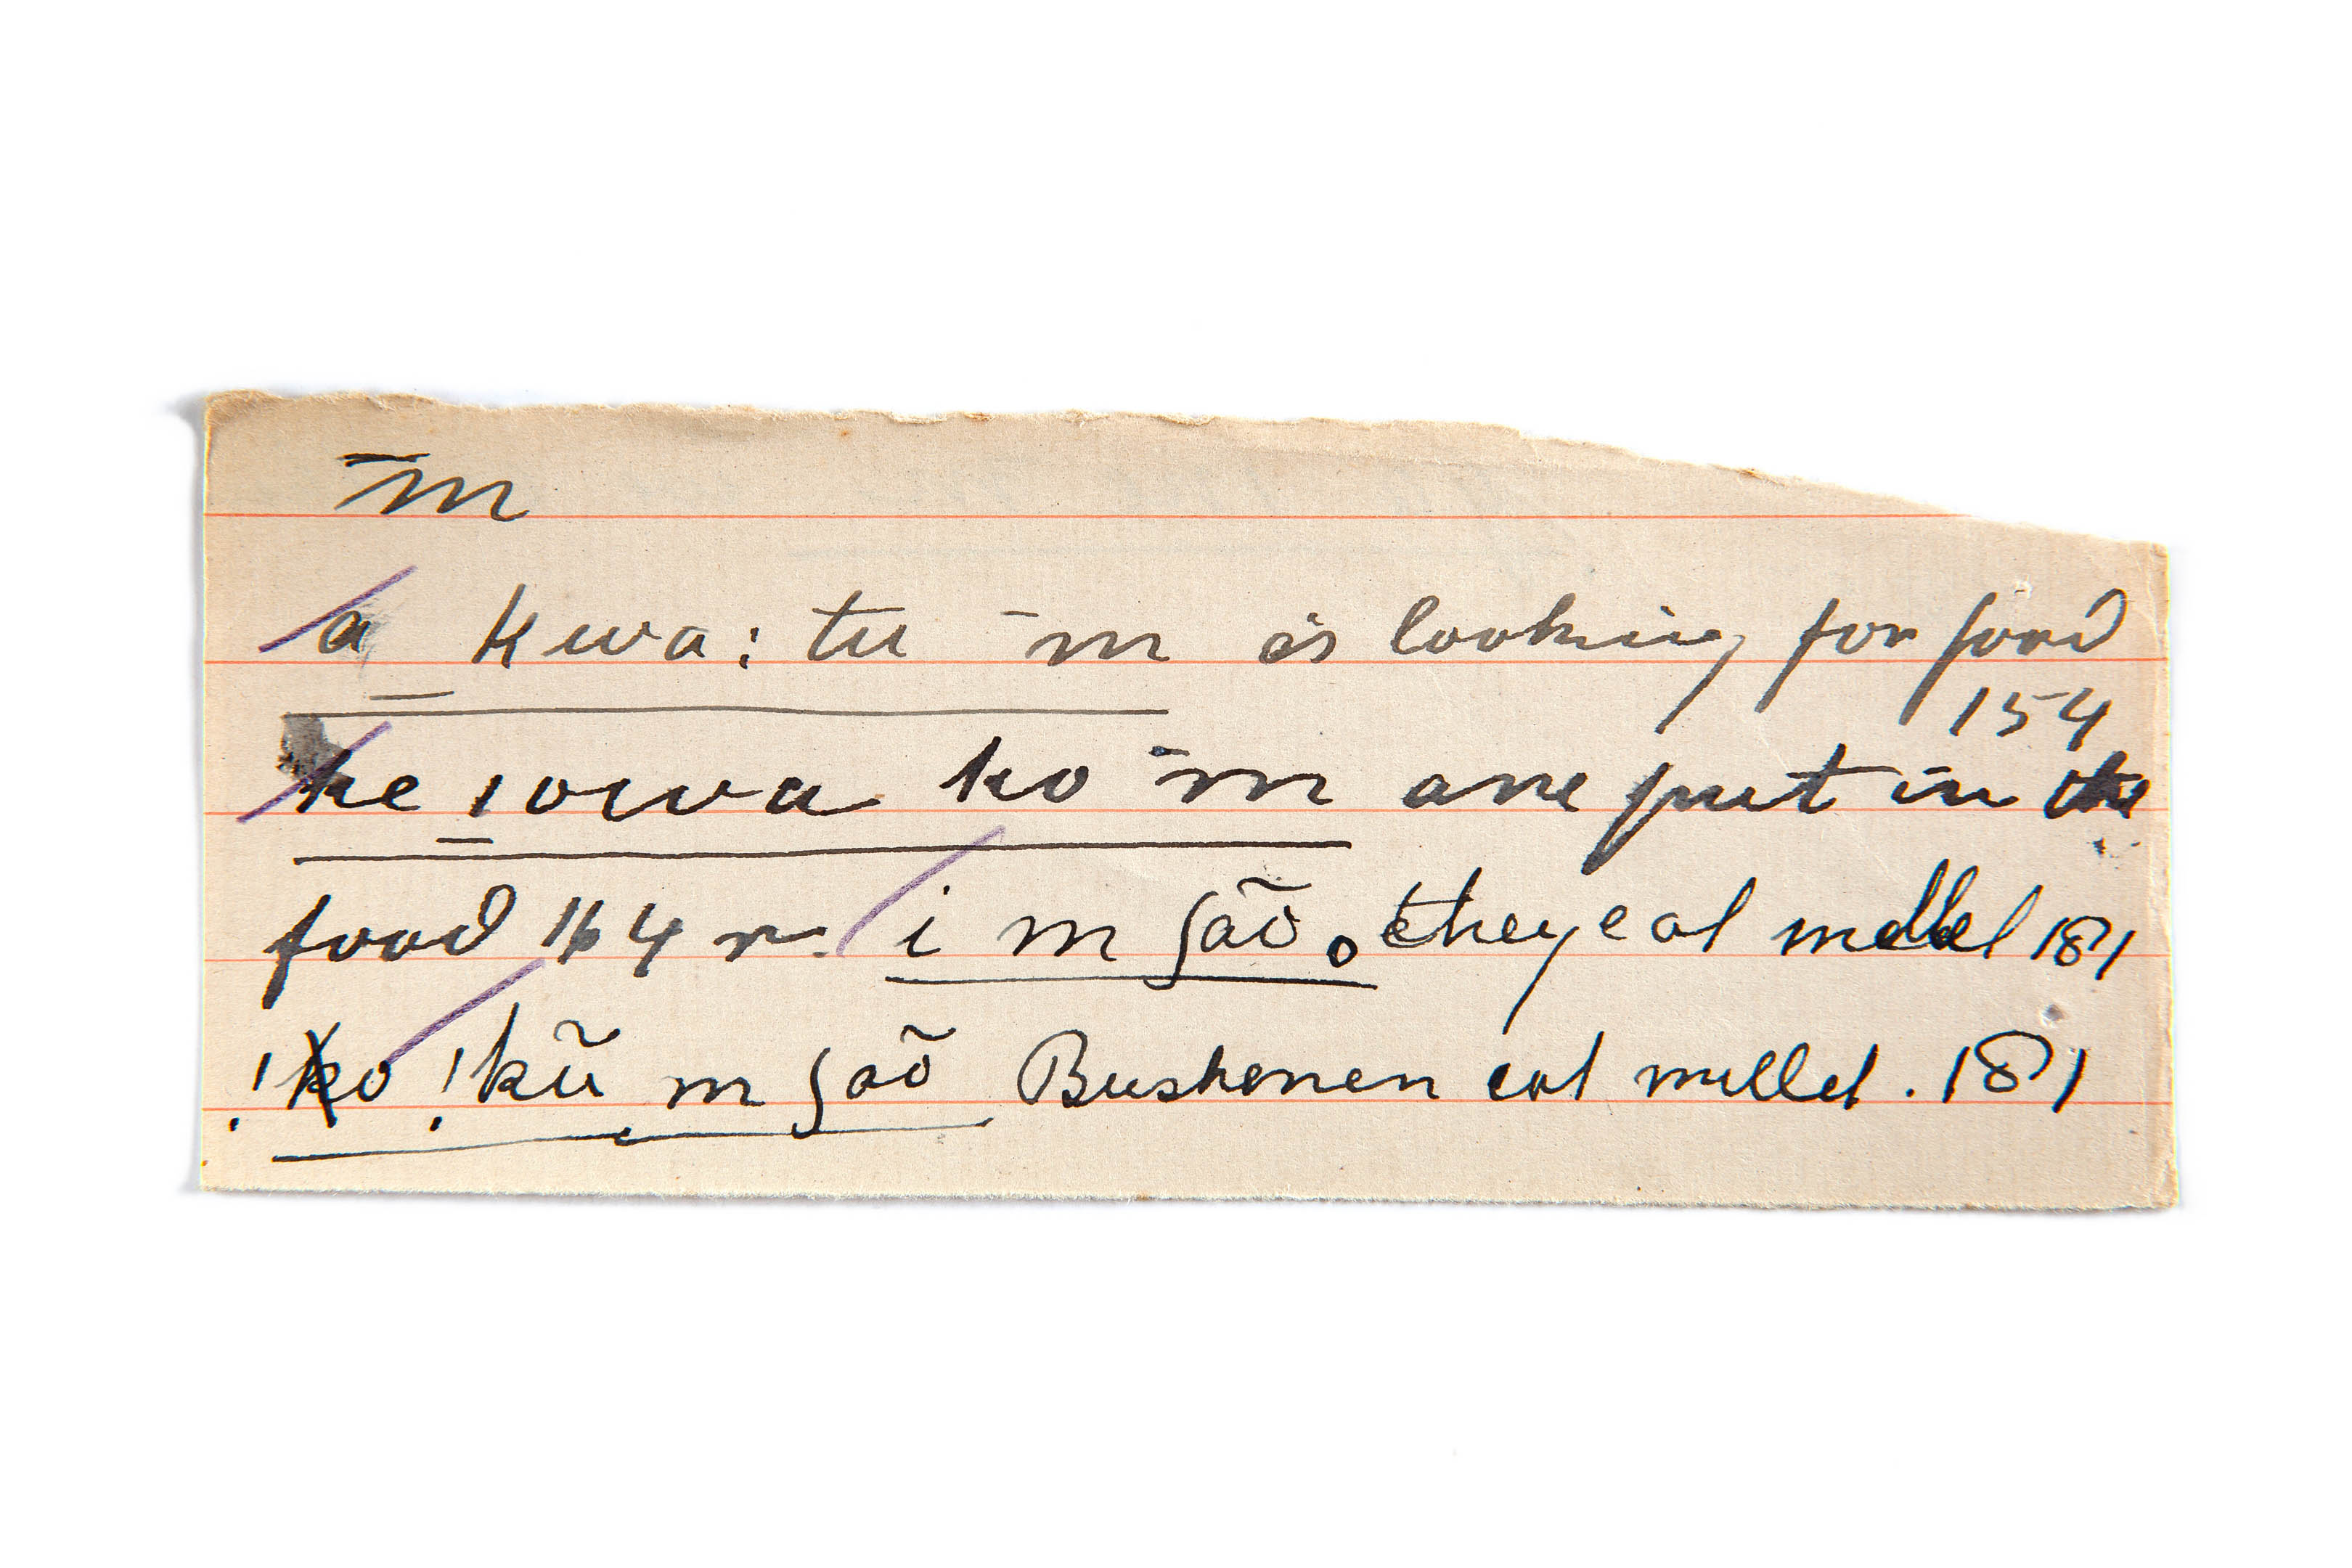 m̄
a kwa: tu m̄ is looking for food
154
ke ıowa ko m̄ are put in the
food 164 r. i m ʃãõ. they eat millet 181
!ko !kũ m ʃaõ Bushmen eat millet. 181